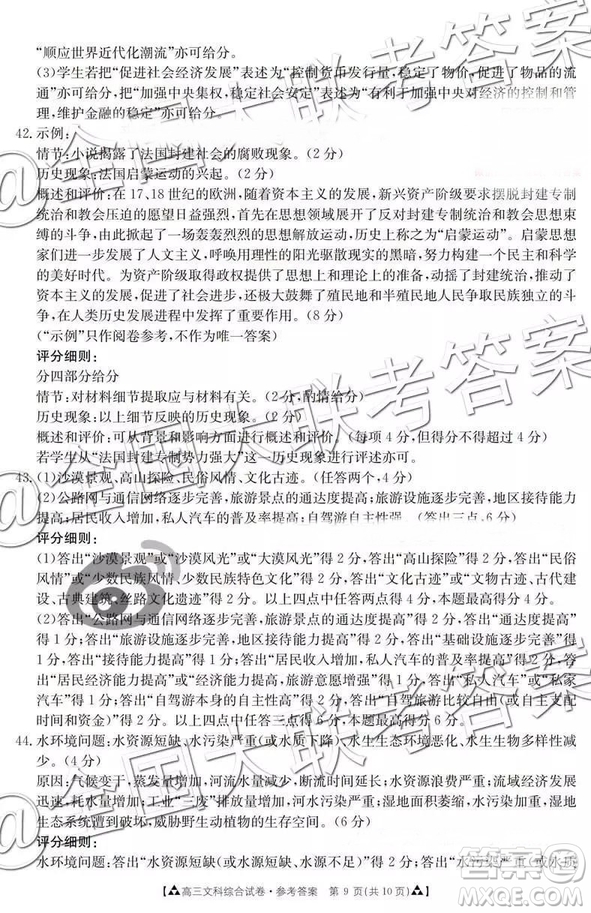 “顺应世界近代化潮流”亦可给分。
(3)学生若把“促进社会经济发展”表述为“控制货币发行量,稳定了物价,促进了物品的流
通”亦可给分,把“加强中央集权,稳定社会”表述为“有利于加强中央对经济的控制和管
理,维护金融的稳定”亦可给分。
42. 示例:
情节:小说揭露了法国封建社会的腐败现象。(2 分)
历史现象:法国启蒙运动的兴起。(2 分)
概述和评价:在 17、18 世纪的欧洲,随着资本主义的发展,新兴资产阶级要求摆脱封建专制
统治和教会压迫的愿望日益强烈,首先在思想领域展开了反封建专制统治和教会思想束
缚的斗争,由此掀起了一场轰轰烈烈的思想解放运动,历史上称之为“启蒙运动”。启蒙思想
家们进一步发展了人文主义,呼唤用理性的阳光驱散现实的黑暗,构建一个民主和科学
的美好时代。为资产阶级取得政权做好了思想上和理论上的准备,动摇了封建统治,推动了
资本主义的发展,还极大鼓舞了殖民地和半殖民地人民为争取民族独立的斗
争,在人类历史发展进程中发挥了重要作用。(8 分)
(“示例”只作阅卷参考,不作为唯一答案)
评分细则:
分四部分给分
情节:对材料细节提取应与材料有关。(2 分,酌情给分)
历史现象:以上细节反映的历史现象。(2 分)
概述和评价:可从背景和影响方面概述和评价。(每项 4 分,两项得 8 分)
若学生从“法国封建专制势力强大”这一历史现象进行评述亦可。
43. (1)沙漠景观、高山探险、民俗风情、文化古迹。(任答两个,4 分)
(2)公路网与通信网络逐步完善,旅游景点的通达度提高;旅游设施逐步完善,接待能力提
高;居民收入增加,私人汽车的普及率提高;自驾游自主性强。(答出三点,6 分)
评分细则:
(1)答出“沙漠景观”或“沙漠风光”或“大漠风光”得 2 分,答出“高山探险”得 2 分,答出“民俗
风情”或“少数民族风情”或“少数民族特色文化”得 2 分,答出“文化古迹”或“文物古迹、古代建
设、古典建筑、丝路文化遗迹”得 2 分。以上四点中任答两点得 4 分,本题最高得分 4 分。
(2)答出“公路网与通信网络逐步完善”得 1 分,答出“旅游景点的通达度提高”
得 1 分;答出“旅游设施逐步完善”得 1 分,答出“接待能力提高”或“基础设施逐步完善”得
1 分;答出“居民收入增加”得 1 分,答出“私人汽车的普及率提高”得 1 分。答出
“居民经济能力提升”或“居民工资提高,旅游意愿增强”得 1 分,答出“私人汽车”或“私家
汽车”得 1 分;答出“自驾游本身的自主性强”或“自驾游旅游比较自由(或自主选择
时间和资金)”得 2 分。以上四点中任答三点得 6 分,本题最高得分 6 分。
44. 水环境问题:水资源短缺、水污染严重(或水质下降)、水生生态环境恶化、水生生物多样性减
少。(4 分)
原因:气候变干,蒸发增加,河流水量减少;水资源浪费严重;流域经济发展
迅速,耗水量增加;工业“三废”排放量增加,河水污染严重;水污染严重,湿地
生态系统遭到破坏,威胁野生动植物的生存空间。(6 分)
评分细则:
水环境问题:答出“水资源短缺(或水源短缺)”得 1 分,答出“水污染严重(或水质
【高三文科综合试卷·参考答案 第 9 页(共 10 页)】
@全国大联考答案